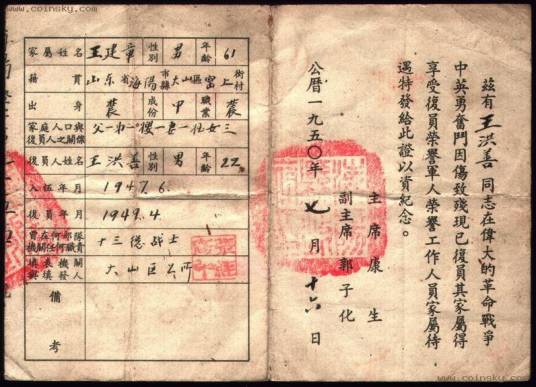 www.coinsky.com
家屬姓名 王建章 性別 男 年齡 61
籍貫 山东省海陽市縣大山區窑上街村
出身 農 成份 中 職業 農
家庭人口與復員人之關係
復員人姓名 王洪善 性別 男 年齡 22
入伍年月 1947.6.
復員年月 1949.4.
十三縱战士
備考
茲有王洪善同志在偉大的革命戰爭
中英勇奮鬥因傷致殘現已復員其家屬得
享受復員榮譽軍人榮譽工作人員家屬待
遇特發給此證以資紀念。
主席康生
副主席郭子化
公曆一九五〇年七月十六日
www.coinsky.com